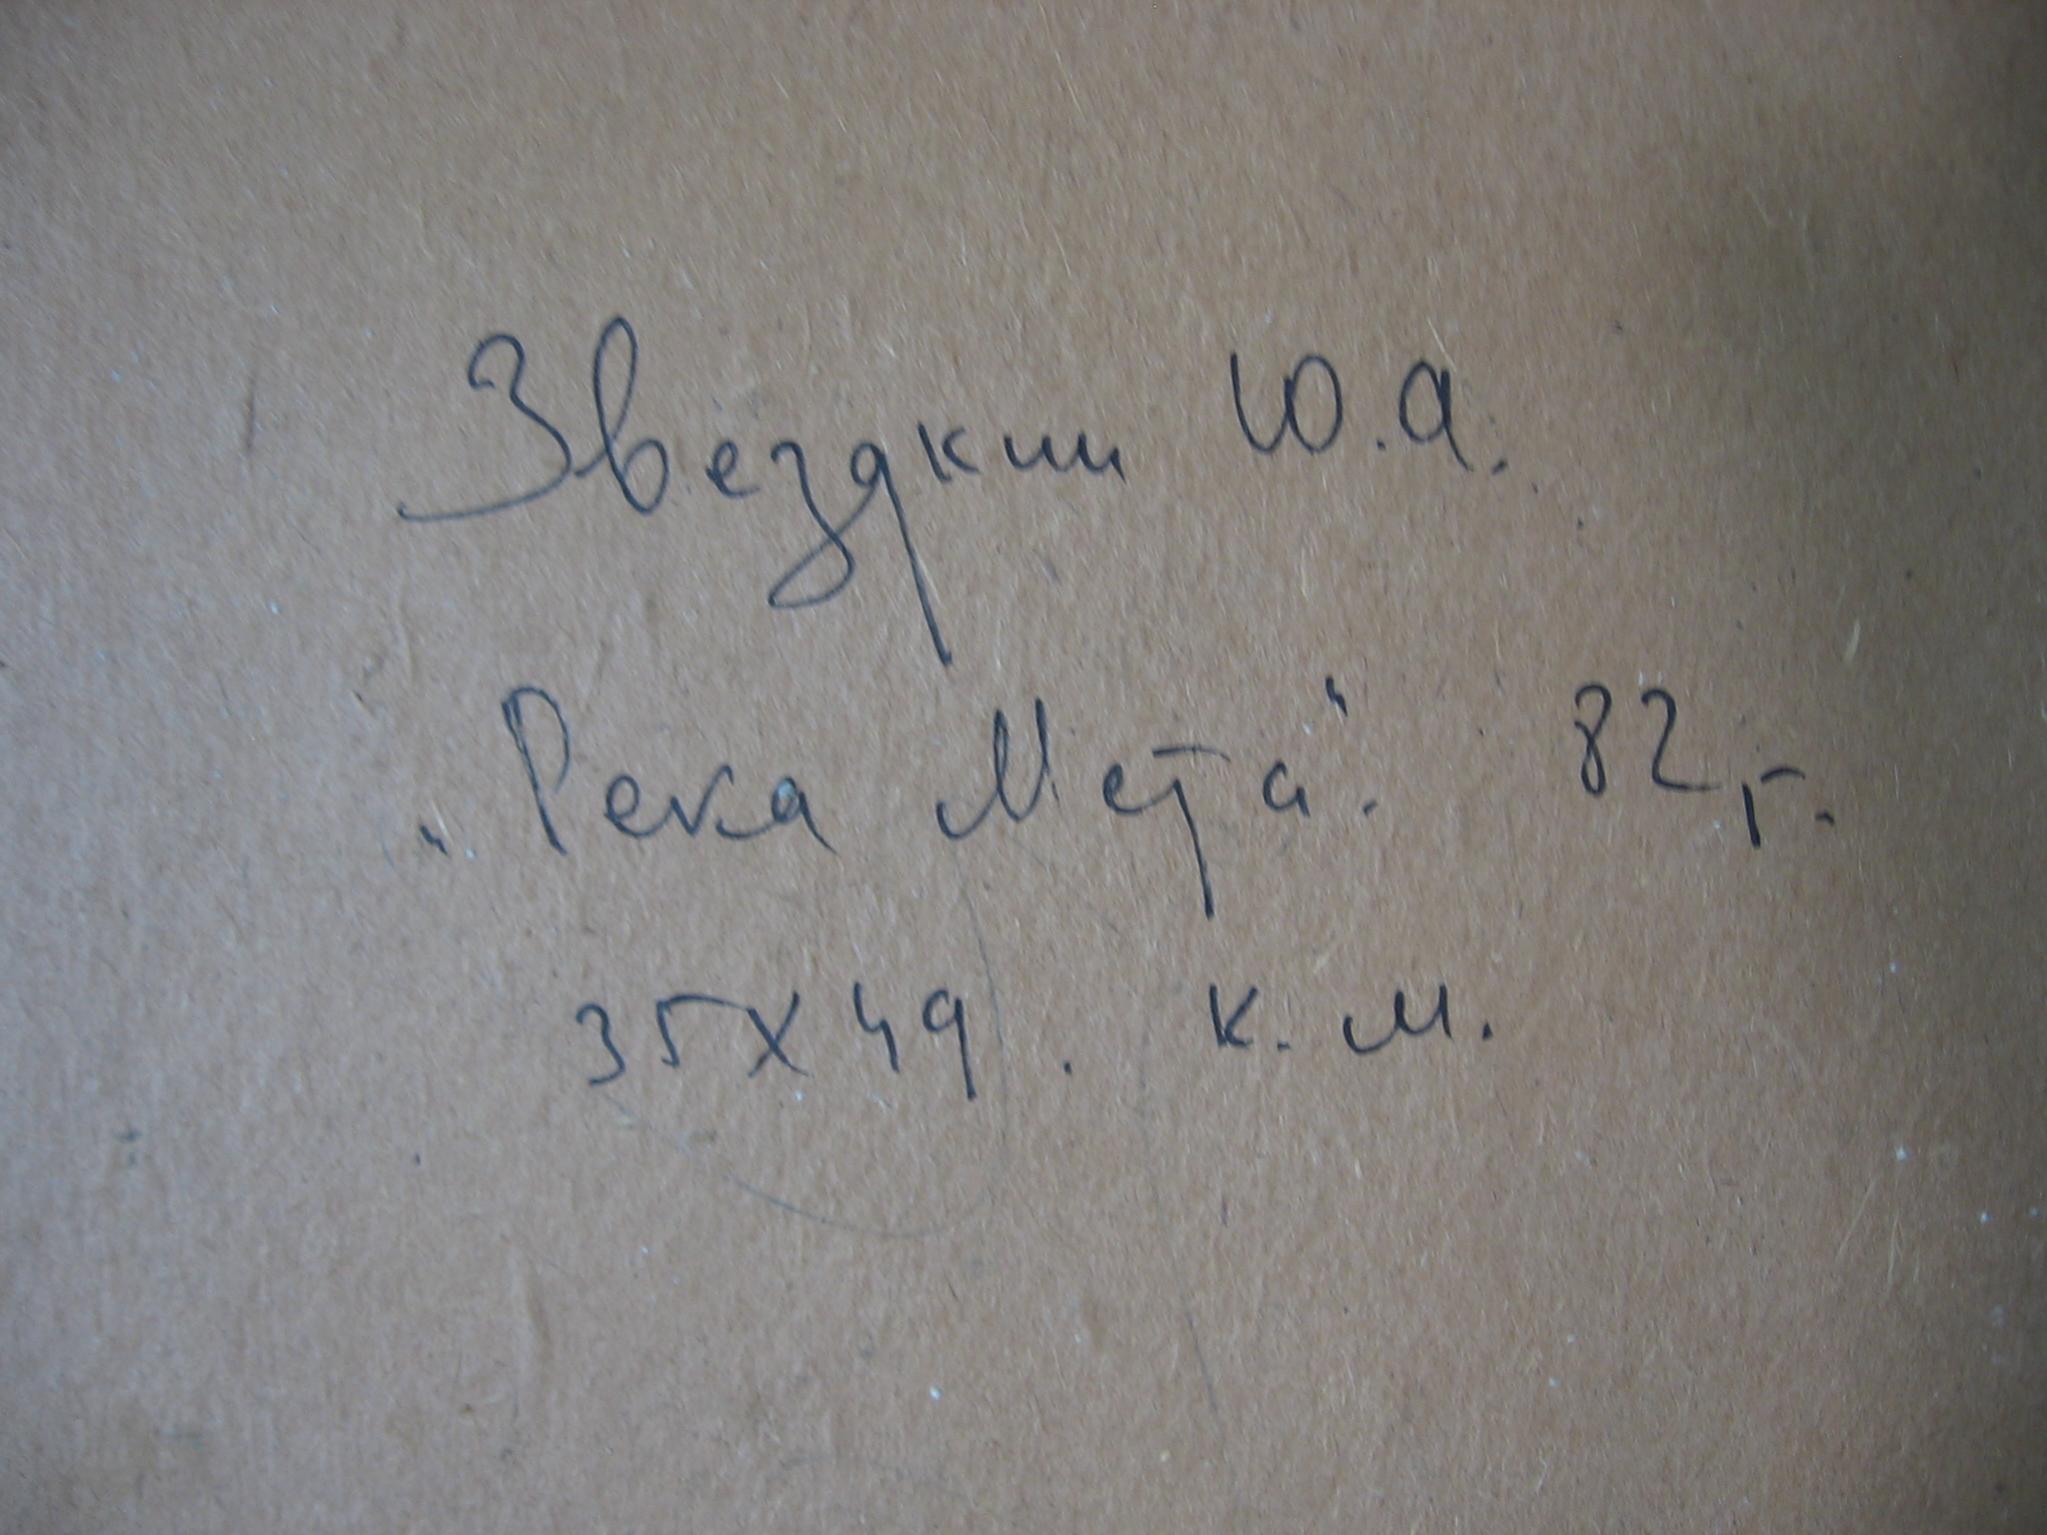 Звездкин Ю.А.
"Река Мста". 82 г.
35х49. к.м.